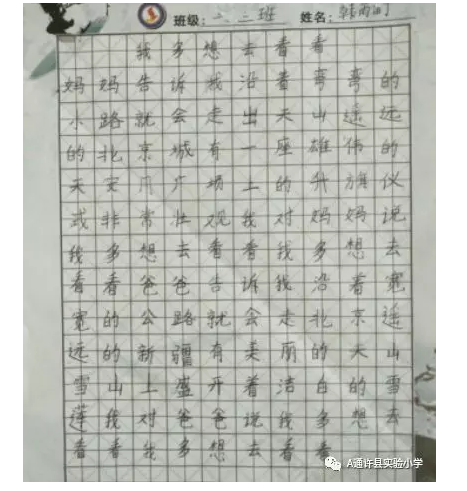 班级: 班 姓名:
我多想去看看
妈妈告诉我沿着弯弯的
小路就会走出天山遥远
的北京城有一座雄伟的
天安门广场上的升旗仪
式非常壮观我对妈妈说
我多想去看看我多想去
看看爸爸告诉我沿着宽
宽的公路就会走北京遥
远的新疆有美丽的天山
雪山上盛开着洁白的雪
莲我对爸爸说我多想去
看看我多想去看看
A通许县实验小学